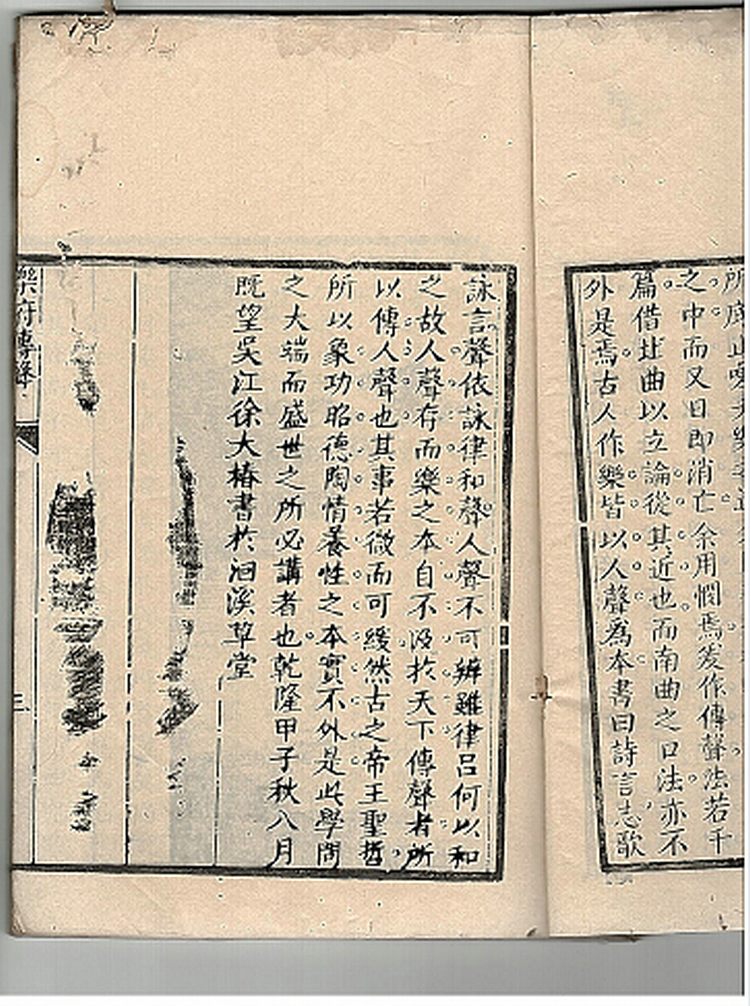 所底止嘆
之中而又日即消亡余用憫焉爰作傳聲法若干
篇借北曲以立論從其近也而南曲之口法亦不
外是焉古人作樂皆以人聲爲本書曰詩言志歌
詠言聲依詠律和聲人聲不可辨雖律呂何以和
之故人聲存而樂之本自不沒於天下傳聲者所
以傳人聲也其事若微而可緩然古之帝王聖哲
所以象功昭德陶情養性之本實不外是此學問
之大端而盛世之所必講者也乾隆甲子秋八月
既望吳江徐大椿書於洄溪草堂
樂府傳聲
三